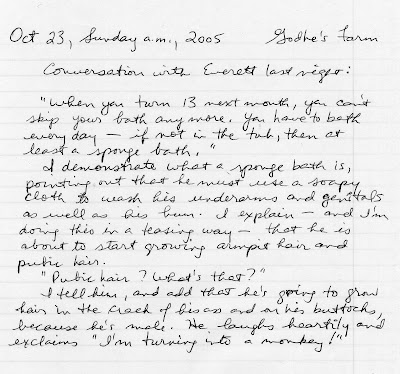 Oct 23, Sunday a.m., 2005 Godhe's Farm
Conversation with Everett last night:
"When you turn 13 next month, you can't
skip your bath anymore. You have to bath
every day — if not in the tub, then at
least a sponge bath."
I demonstrate what a sponge bath is,
pointing out that he must use a soapy
cloth to wash his underarms and genitals
as well as his bum. I explain — and I'm
doing this in a teasing way — that he is
about to start growing armpit hair and
pubic hair.
"Pubic hair? What's that?"
I tell him, and add that he's going to grow
hair in the crack of his ass and on his buttocks,
because he's male. He laughs heartily and
exclaims "I'm turning into a monkey!"